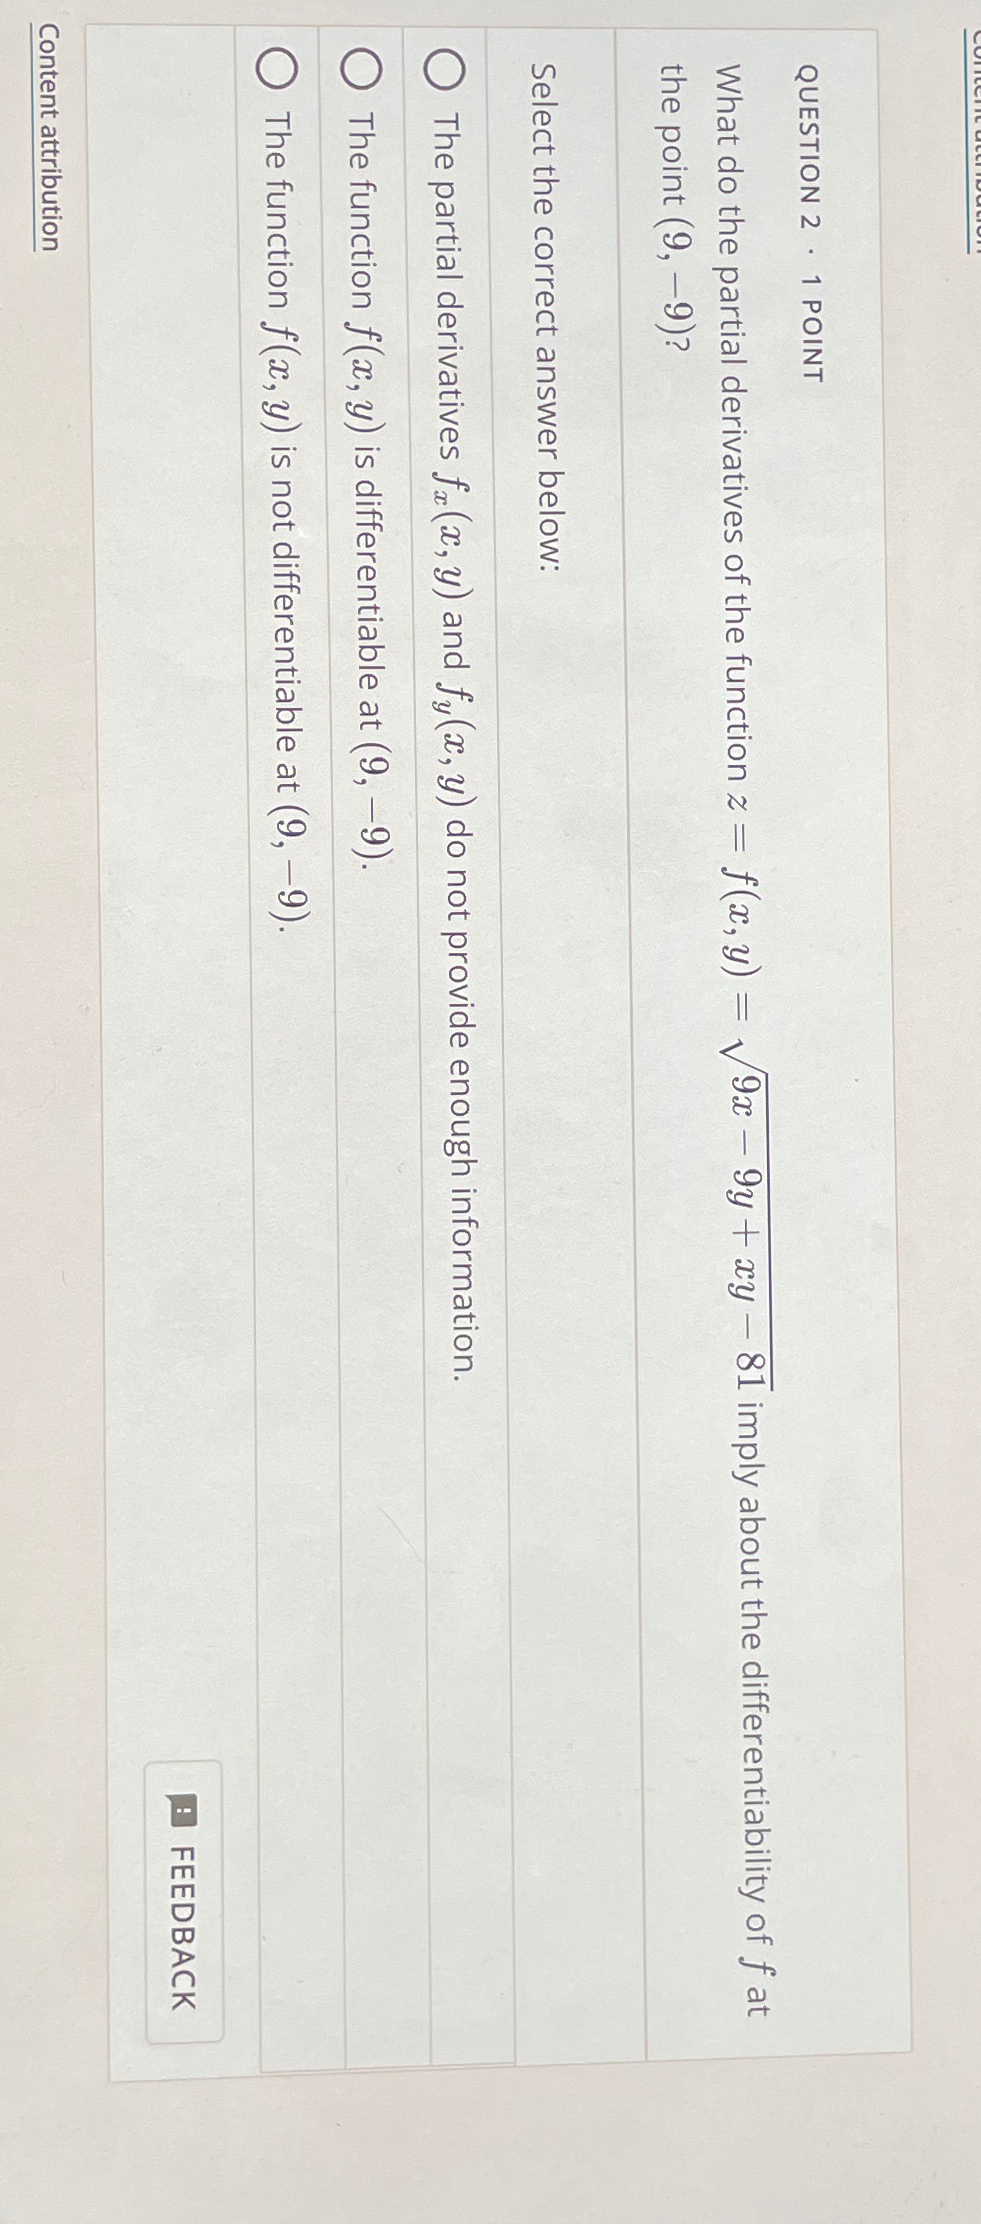 QUESTION 2 · 1 POINT
What do the partial derivatives of the function z = f(x, y) = √(9x − 9y + xy − 81) imply about the differentiability of f at
the point (9, −9)?
Select the correct answer below:
The partial derivatives fₓ(x, y) and f_y(x, y) do not provide enough information.
The function f(x, y) is differentiable at (9, −9).
The function f(x, y) is not differentiable at (9, −9).
FEEDBACK
Content attribution